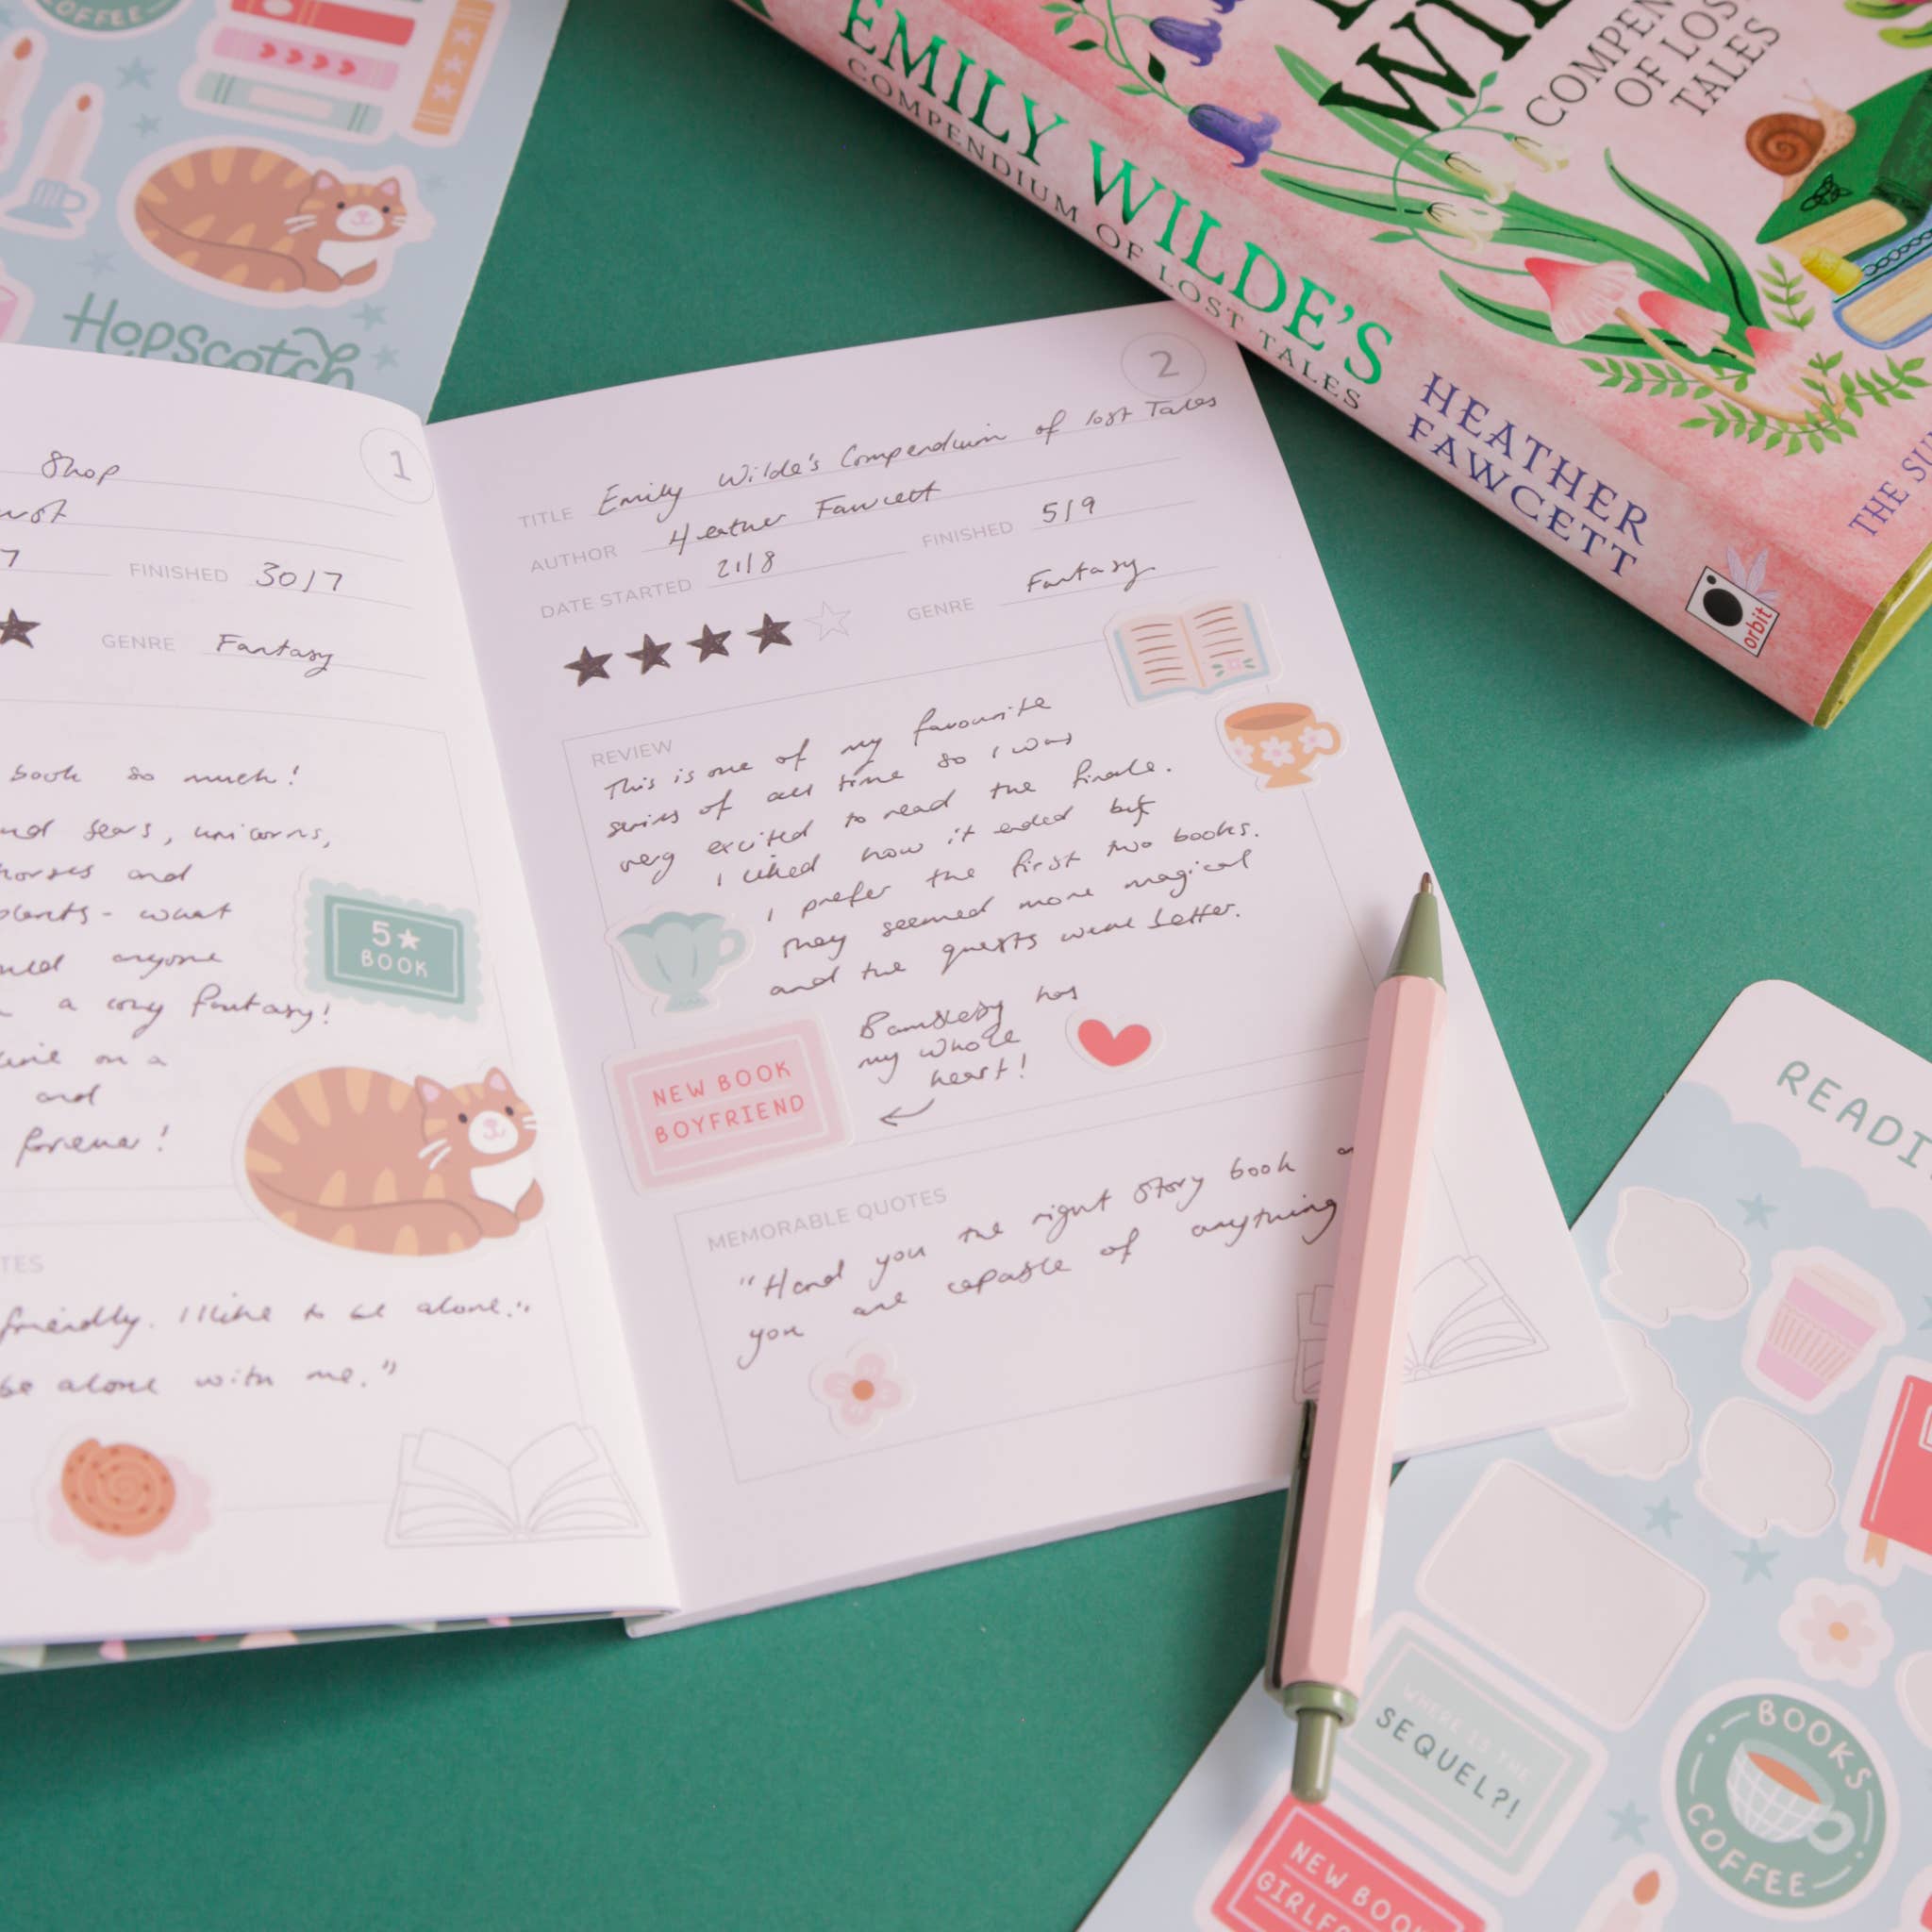 COFFEE
Hopscotch
EMILY WILDE'S
COMPENDIUM OF LOST TALES
HEATHER
FAWCETT
orbit
WIL
COMPEN
OF LOS
TALES
THE SU
1
Shop
7
FINISHED 30/7
GENRE Fantasy
book so much!
unicorns,
horses and
plants - what
anyone
a cosy fantasy!
on a
and
forever!
5★
BOOK
TES
friendly. I like to be alone."
be alone with me."
2
TITLE Emily Wilde's Compendium of lost Tales
AUTHOR Heather Fawcett
DATE STARTED 21/8
FINISHED 5/9
GENRE Fantasy
REVIEW
This is one of my favourite
series of all time so I was
very excited to read the finale.
I liked how it ended but
I prefer the first two books.
They seemed more magical
and the quests were better.
Bambleby has
my whole
heart!
NEW BOOK
BOYFRIEND
MEMORABLE QUOTES
"Hand you the right story book
you are capable of anything
READI
WHERE IS THE
SEQUEL?!
BOOKS
COFFEE
NEW BOO
GIRLF